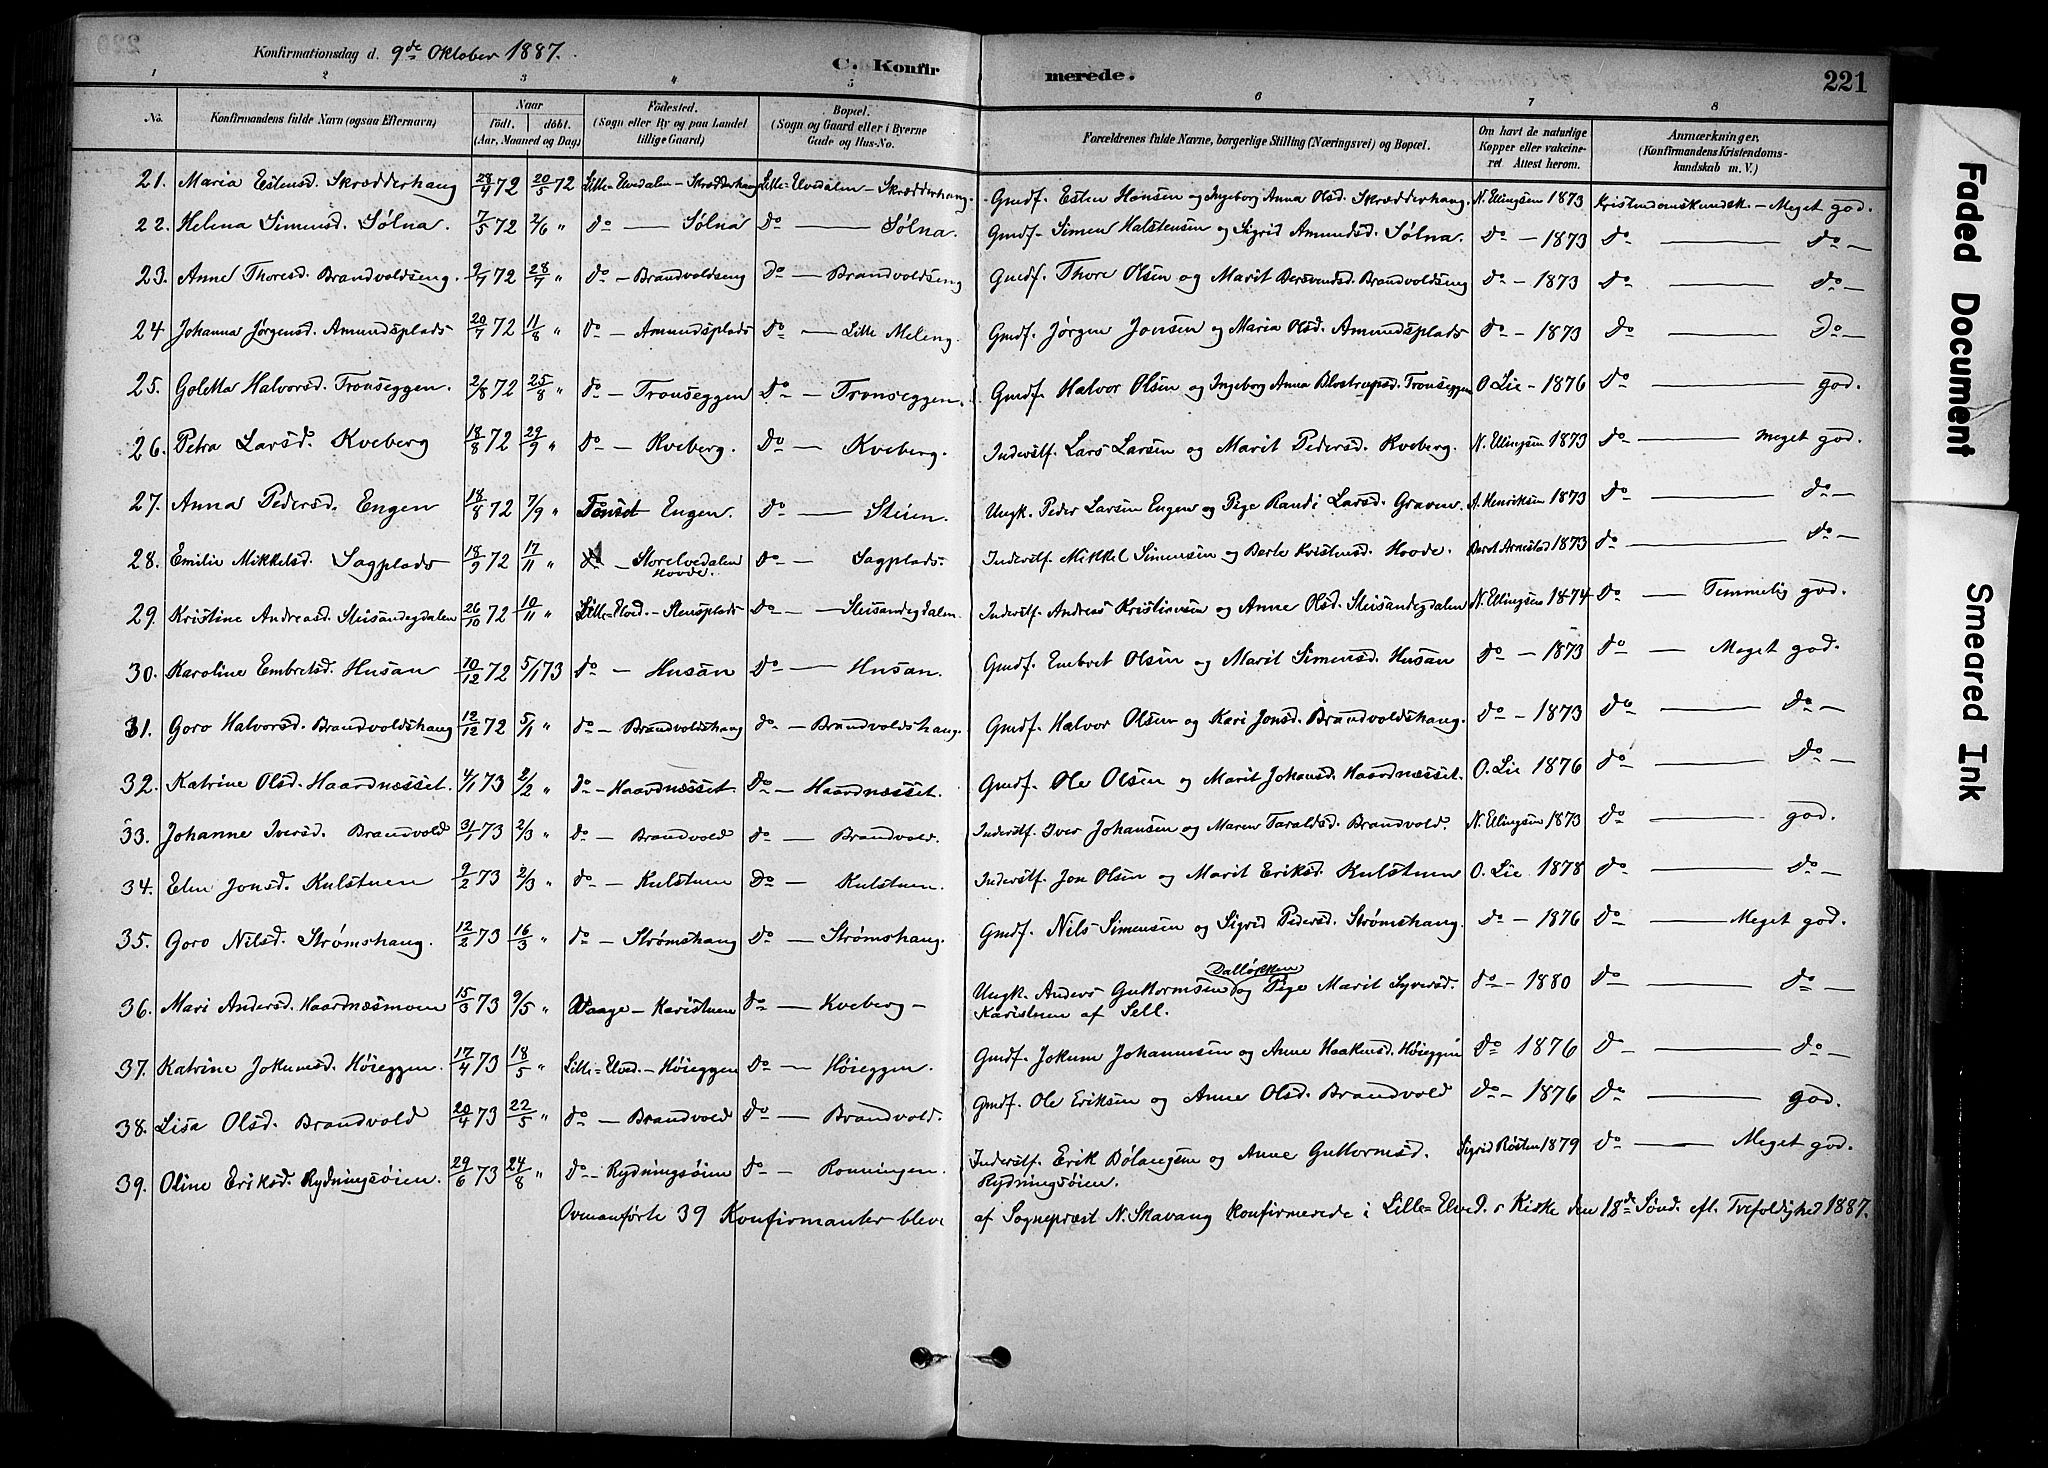 Konfirmationsdag d. 9de Oktober 1887.
C. Konfirmerede.
221
1 2 3 " 5 6 7 8
No. Konfirmandens fulde Navn (ogsaa Efternavn) Naar født. døbt. (Aar, Maaned og Dag) Fødested. (Sogn eller By og paa Landet tillige Gaard) Bopæl. (Sogn og Gaard eller i Byerne Gade og Hus-No. Forældrenes fulde Navne, borgerlige Stilling (Næringsvei) og Bopæl. Om havt de naturlige Kopper eller vakcineret Attest herom. Anmærkninger, (Konfirmandens Kristendomskundskab m. V.)
21. Maria Estensd. Skrædderhaug 28/4 72 20/5 72 Lille-Elvedalen - Skrædderhaug Lille-Elvedalen - Skrædderhaug. Gmdf. Esten Hansen og Ingeborg Anna Olsd. Skrædderhaug. N. Ellingsen 1873 Kristendomskundsk. - Meget god.
22. Helena Simensd. Sølna. 7/5 72 2/6 " do - Sølna do - Sølna. Gmdf. Simen Halstensen og Sigrid Amundsd. Sølna. do - 1873 do - do -
23. Anne Thoresd. Brandvoldseng. 9/7 72 28/7 " do - Brandvoldseng do - Brandvoldseng Gmdf. Thore Olsen og Marit Bersvendsd. Brandvoldseng do - 1873 do - do -
24 Johanna Jørgensd. Amundsplads 20/7 72 11/8 " do - Amundsplads do - Lille Meleng. Gmdf. Jørgen Jonsen og Maria Olsd. Amundsplads do - 1873 do - do -
25. Goletta Halvorsd. Tronseggen. 2/8 72 25/8 " do - Tronseggen do - Tronseggen. Gmdf. Halvor Olsen og Ingeborg Anna Tronseggen O. Lie - 1876 do - god.
26. Petra Larsd. Kveberg 18/8 72 29/9 " do - Kveberg. do - Kveberg. Inderstf. Lars Larsen og Marit Pedersd. Kveberg. N. Ellingsen 1873 do - meget god.
27. Anna Pedersd. Engen 18/8 72 7/9 " Tønset Engen. do - Steien. Ungk. Peder Larsen Engen og Pige Randi Larsd. Graven A. Henriksen 1873 do - do -
28. Emilie Mikkelsd. Sagplads 18/9 72 17/11 " - Storelvedalen Hovde. do - Sagplads. Inderstf. Mikkel Simensen og Berte Kristensd. Hovde. Beret Arnestad 1873 do - do -
29. Kristine Andreasd. Steisandegdalen 26/10 72 10/11 " Lille-Elvd. - Stensplads do - Steisandegdalen. Inderstf. Andreas Kristiansen og Anne Olsd. Steisandegdalen N. Ellingsen 1874 do - Temmelig god.
30. Karoline Embretsd. Husan 10/12 72 5/1 73 do - Husan do - Husan. Gmdf. Embret Olsen og Marit Simensd. Husan do - 1873 do - Meget god.
31. Goro Halvorsd. Brandvoldshaug 12/12 72 5/1 " do - Brandvoldshaug do - Brandvoldshaug. Gmdf. Halvor Olsen og Kari Jonsd. Brandvoldshaug. do - 1873 do - do -
32. Katrine Olsd. Haardnæsset. 4/1 73 2/2 " do - Haardnæsset. do - Haardnæsset. Gmdf. Ole Olsen og Marit Johansd. Haardnæsset. O. Lie 1876 do - do -
33. Johanne Iversd. Brandvold 31/1 73 2/3 " do - Brandvold do - Brandvold. Inderstf. Iver Johansen og Maren Taraldsd. Brandvold. N. Ellingsen 1873 do - god.
34. Elen Jonsd. Kulstuen 9/2 73 2/3 " do - Kulstuen do - Kulstuen. Inderstf. Jon Olsen og Marit Eriksd. Kulstuen O. Lie 1878 do - do -
35. Goro Nilsd. Strømshaug. 12/2 73 16/3 " do - Strømshaug do - Strømshaug. Gmdf. Nils Simensen og Sigrid Pedersd. Strømshaug do - 1876 do - Meget god.
36. Mari Andersd. Haardnæsmoen 15/3 73 9/5 " Vaage - Karistuen do - Kveberg - Ungk. Anders Guttormsen Dalløkken og Pige Marit Syversd. Karistuen af Sell. do - 1880 do - do -
37. Katrine Jokumsd. Høieggen. 17/4 73 18/5 " Lille-Elved. - Høieggen do - Høieggen. Gmdf. Jokum Johannesen og Anne Haakensd. Høieggen do 1876 do - do -
38. Lisa Olsd. Brandvold 20/4 73 22/5 " do - Brandvold do - Brandvold. Gmdf. Ole Eriksen og Anne Olsd. Brandvold do - 1876 do - god.
39. Oline Eriksd. Rydningsøien. 29/6 73 24/8 " do - Rydningsøien do - Ronningen. Inderstf. Erik Bølangsen og Anne Guttormsd. Rydningsøien. Sigrid Røsten 1879 do - Meget god.
Ovenanførte 39 Konfirmanter bleve af Sogneprest N. Skavang konfirmerede i Lille-Elved.s Kirke den 18de Sønd. eft. Trefoldighed 1887.
Faded Document
Smeared Ink